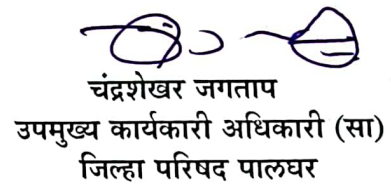 चंद्रशेखर जगताप
उपमुख्य कार्यकारी अधिकारी (सा)
जिल्हा परिषद पालघर